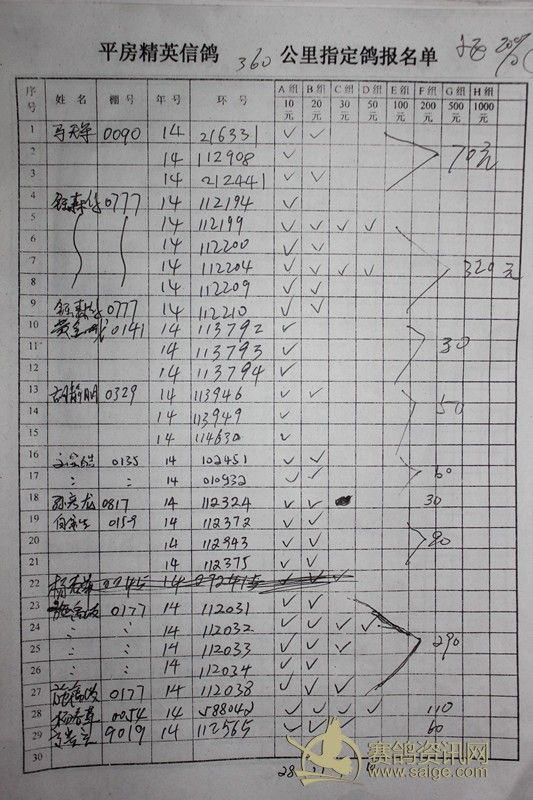 平房精英信鸽 360 公里指定鸽报名单
序号 姓名 棚号 年号 环号 A组10元 B组20元 C组30元 D组50元 E组100元 F组200元 G组500元 H组1000元
1 马天军 0090 14 216331 ✓ ✓
2 14 112908 ✓ 70元
3 14 212441 ✓ ✓
4 0777 14 112194 ✓
5 14 112199 ✓ ✓ ✓ ✓
6 14 112200 ✓ ✓
7 14 112204 ✓ ✓ ✓ ✓ 320元
8 14 112209 ✓ ✓
9 0777 14 112210 ✓ ✓
10 0141 14 113792 ✓
11 14 113793 ✓ 30
12 14 113794 ✓
13 胡静明 0329 14 113946 ✓ ✓
14 14 113949 ✓ 50
15 14 114630 ✓
16 0135 14 102451 ✓ ✓
17 : : 14 010932 ✓ ✓ 60
18 孙彦龙 0817 14 112324 ✓ ✓ 30
19 0159 14 112372 ✓ ✓
20 14 112943 ✓ ✓ 90
21 14 112375 ✓ ✓
22
23 0177 14 112031 ✓ ✓
24 : : 14 112032 ✓ ✓ ✓ ✓
25 : : 14 112033 ✓ ✓ ✓ 290
26 : : 14 112034 ✓ ✓
27 0177 14 112038 ✓ ✓ ✓
28 0054 14 588042 ✓ ✓ ✓ ✓ 110
29 9019 14 112565 ✓ ✓ ✓ 60
30
28
赛鸽资讯网
www.saige.com